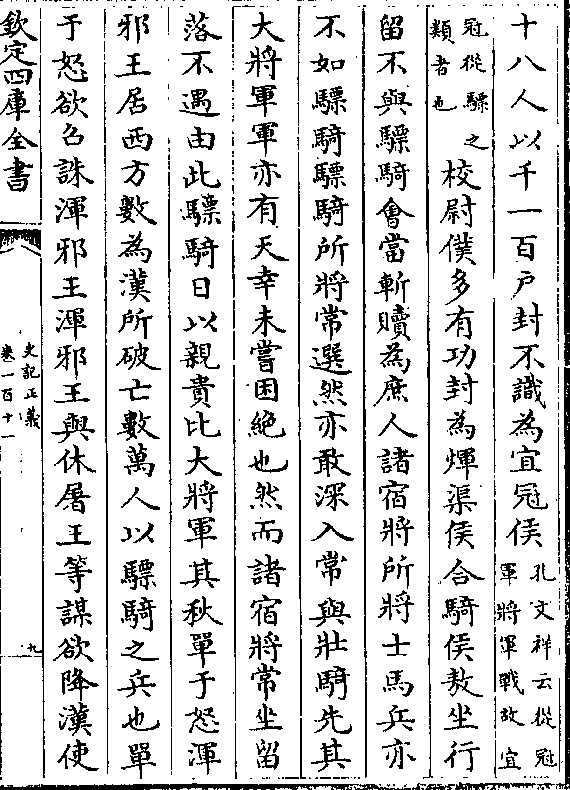 十八人以千一百戶封不識為宜冠侯孔文祥云從冠軍將軍戰故宜
冠從驃之類者也校尉僕多有功封為煇渠侯合騎侯敖坐行
留不與驃騎會當斬贖為庶人諸宿將所將士馬兵亦
不如驃騎驃騎所將常選然亦敢深入常與壯騎先其
大將軍軍亦有天幸未嘗困絕也然而諸宿將常坐留
落不遇由此驃騎日以親貴比大將軍其秋單于怒渾
邪王居西方數為漢所破亡數萬人以驃騎之兵也單
于怒欲召誅渾邪王渾邪王與休屠王等謀欲降漢使
欽定四庫全書
史記正義
卷一百十一
九